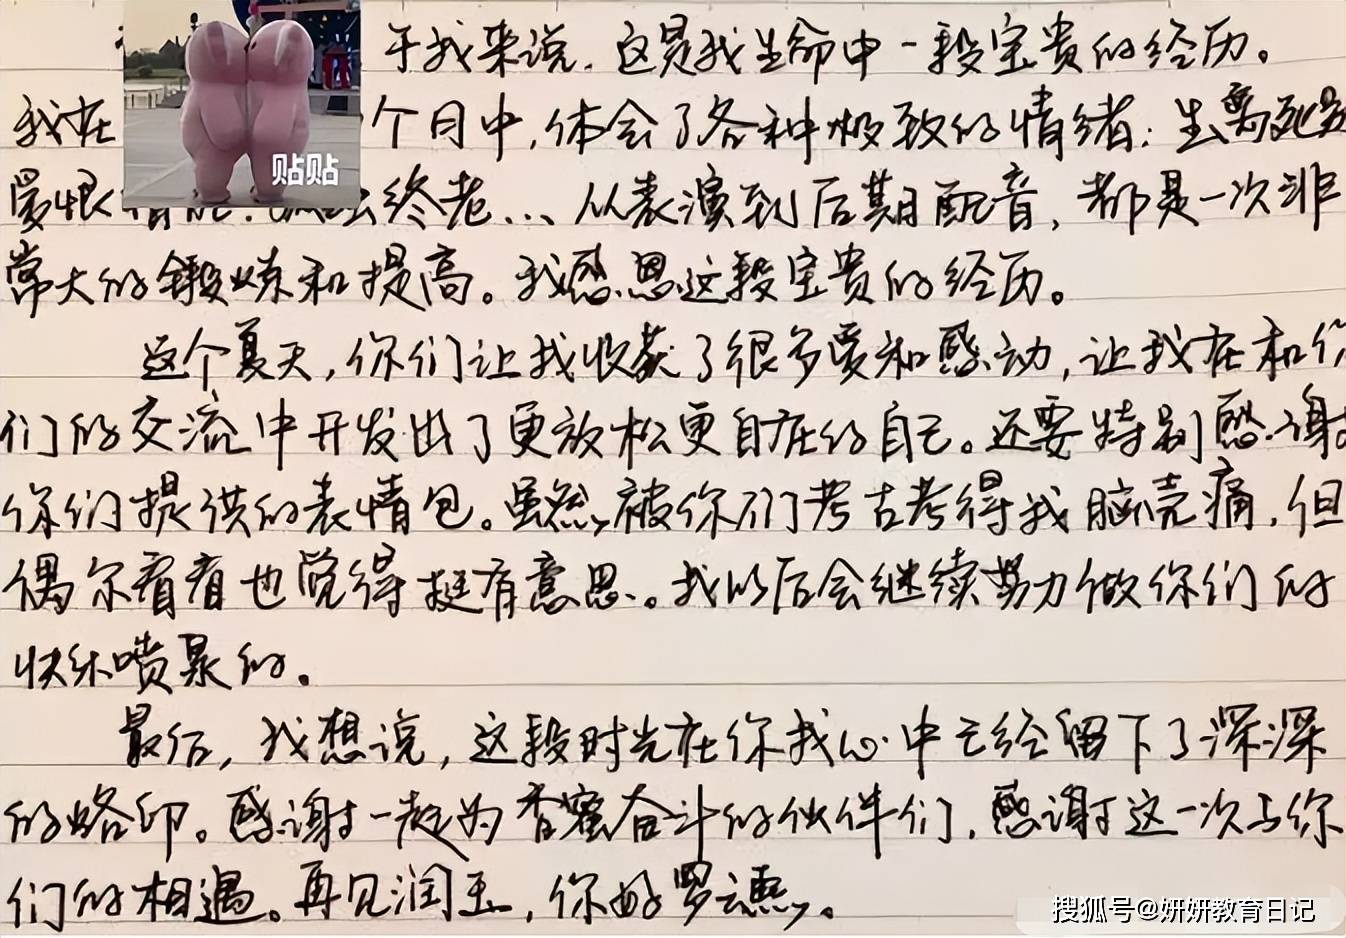 于我来说，这是我生命中一段宝贵的经历。
我在 个月中，体会了各种极致的情绪：生离死别
爱恨 终老... 从表演到后期配音，都是一次非
常大的锻炼和提高。我感恩这段宝贵的经历。
这个夏天，你们让我收获了很多爱和感动，让我在和你
们的交流中开发出了更放松更自在的自己。还要特别感谢
你们提供的表情包。虽然被你们考古考得我脑壳痛，但
偶尔看看也觉得挺有意思。我以后会继续努力做你们的
快乐喷泉的。
最后，我想说，这段时光在你我心中已经留下了深深
的烙印。感谢一起为香蜜奋斗的伙伴们，感谢这一次与你
们的相遇。再见润玉，你好罗云熙。
贴贴
搜狐号@妍妍教育日记